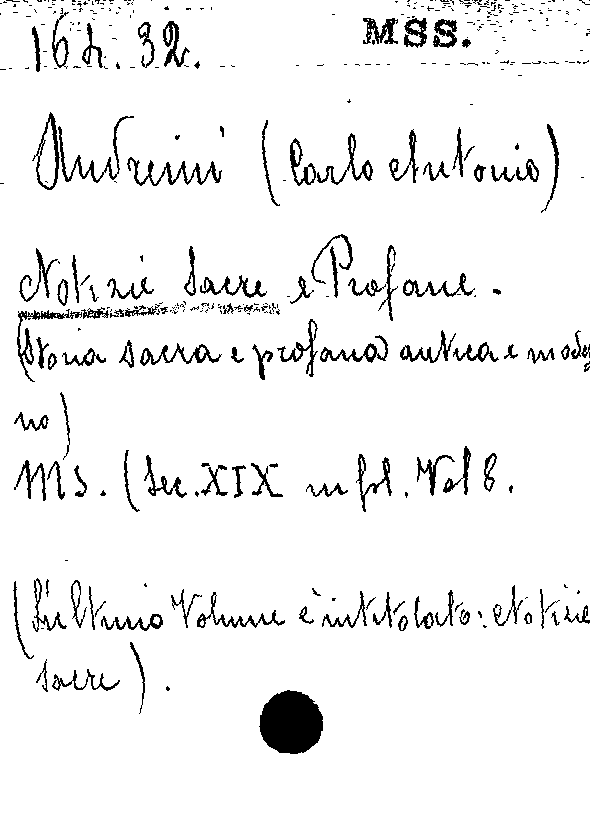 16 h. 32. MSS.
Andreini (Carlo Antonio)
Notizie Sacre e Profane.
(Storia sacra e profana antica e moder
no)
Ms. (Sec. XIX in fol. Vol 8.
(L'ultimo Volume è intitolato: Notizie
sacre).